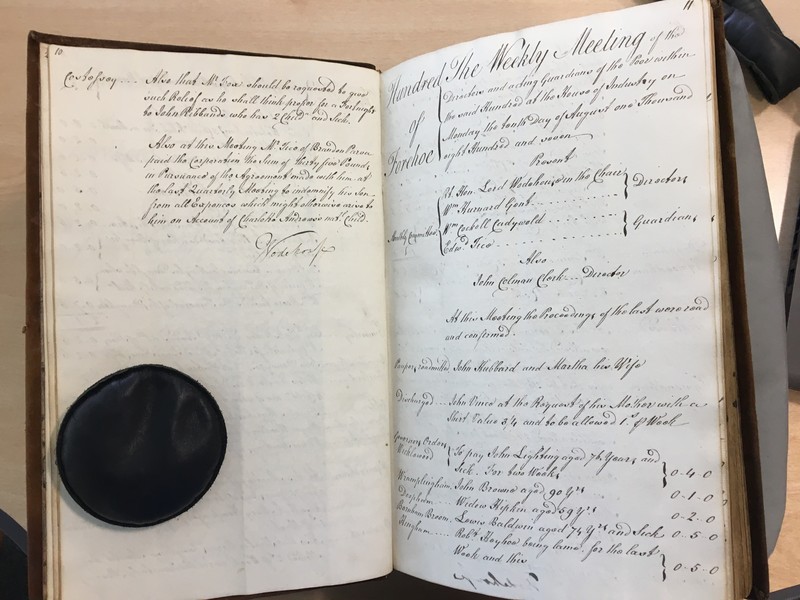 10
Costessey .... Also that Mr. Fox should be requested to give
such Relief as he shall think proper for a Fortnight
to John Ribbands who has 2 Child. and Sick.
Also at this Meeting Mr. Tice of Brandon Parva
paid the Corporation the Sum of thirty five Pounds
in Pursuance of the Agreement made with him at
the last Quarterly Meeting to indemnify his Son
from all Expences which might otherwise arise to
him on Account of Charlotte Andrews's nat.l Child.
Wodehouse
11
Hundred of Forehoe
The Weekly Meeting of the
Directors and acting Guardians of the Poor within
the said Hundred at the House of Industry on
Monday the tenth day of August one Thousand
eight Hundred and seven
Present
Monthly Committee
Rt. Hon. Lord Wodehouse in the Chair
Wm. Burnard Gent.
} Directors
Wm. Corbell Cadywold
Edwd. Tice
} Guardians
Also
John Colman Clerk .... Director
At this Meeting the Proceedings of the last were read
and confirmed.
Paupers readmitted John Hubbard and Martha his Wife
Discharged .... John Vince at the Request of his Mother with a
Shirt Value 3/4 and to be allowed 1s. P Week
Orders
Wicklewood } To pay John Lighting aged 74 Years and
Sick. For two Weeks } 0-4-0
Wramplingham. John Browne aged 90 Yrs. 0-1-0
Deopham .... Widow Hipkin aged 59 Yrs. 0-2-0
Barnham Broom. Lewis Baldwin aged 74 Yrs. and Sick 0-5-0
Hingham .... Robt. Hayhoe being lame, for the last
Week and this } 0-5-0